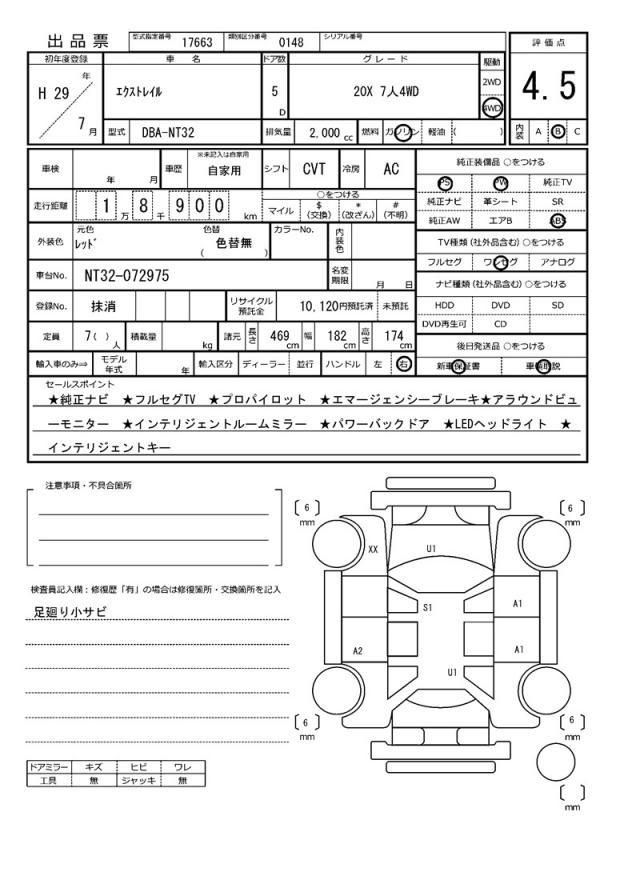 出品票 型式指定番号 17663 類別区分番号 0148 シリアル番号
評価点
4.5
初年度登録 車名 ドア数 グレード 駆動
H 29 年 7 月 エクストレイル 5 D 20X 7人4WD 2WD 4WD
型式 DBA-NT32 排気量 2,000 cc 燃料 ガソリン 軽油 ( ) 内装 A B C
車検 年 月 車歴 ※未記入は自家用 自家用 シフト CVT 冷房 AC
走行距離 1 万 8 千 9 0 0 km
○をつける
マイル $ (交換) * (改ざん) # (不明)
外装色 元色 レッド 色替 色替無 ( ) カラーNo. 内装色
車台No. NT32-072975 名変期限 月 日
登録No. 抹消 リサイクル預託金 10,120円預託済 未預託
定員 7( ) 人 積載量 kg 諸元 長さ 469 cm 幅 182 cm 高さ 174 cm
輸入車のみ⇒ モデル年式 年 輸入区分 ディーラー 並行 ハンドル 左 右
純正装備品 ○をつける
PS PW 純正TV
純正ナビ 革シート SR
純正AW エアB ABS
TV種類(社外品含む)○をつける
フルセグ ワンセグ アナログ
ナビ種類(社外品含む)○をつける
HDD DVD SD
DVD再生可 CD
後日発送品 ○をつける
新車保証書 車輌取説
セールスポイント
★純正ナビ ★フルセグTV ★プロパイロット ★エマージェンシーブレーキ★アラウンドビュ
ーモニター ★インテリジェントルームミラー ★パワーバックドア ★LEDヘッドライト ★
インテリジェントキー
注意事項・不具合箇所
検査員記入欄:修復歴「有」の場合は修復箇所・交換箇所を記入
足廻り小サビ
ドアミラー キズ ヒビ ワレ
工具 無 ジャッキ 無
6 mm
6 mm
XX U1
S1 A1
A2 A1
U1
6 mm
6 mm
mm